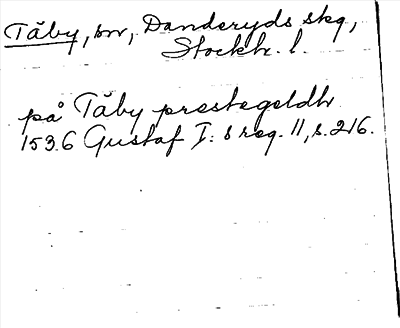 Täby, sn, Danderyds skg,
Stockh. l.
på Täby prestegeldh
1536 Gustaf I: s reg. 11, s. 216.